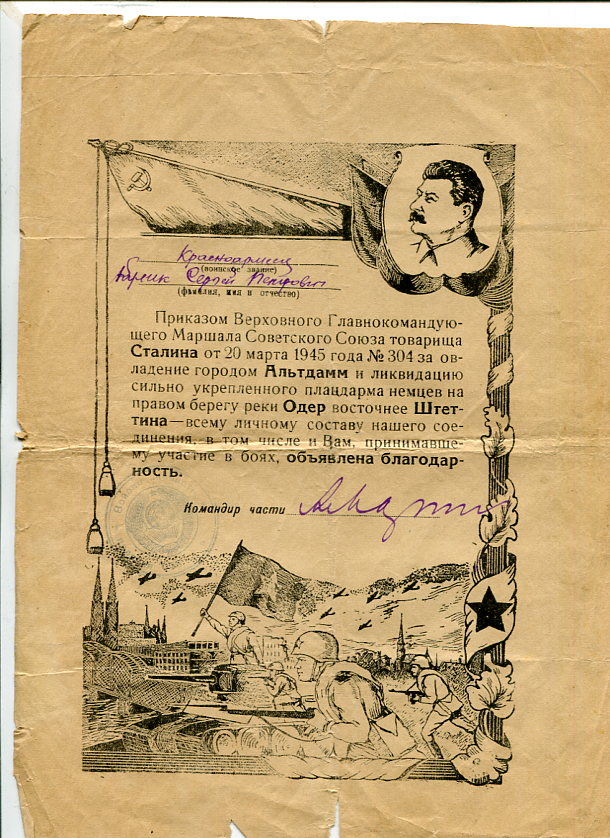 Красноармеец
(воинское звание)
Сергей Петрович
(фамилия, имя и отчество)
Приказом Верховного Главнокомандую-
щего Маршала Советского Союза товарища
Сталина от 20 марта 1945 года № 304 за ов-
ладение городом Альтдамм и ликвидацию
сильно укрепленного плацдарма немцев на
правом берегу реки Одер восточнее Штет-
тина—всему личному составу нашего сое-
динения, в том числе и Вам, принимавше-
му участие в боях, объявлена благодар-
ность.
Командир части